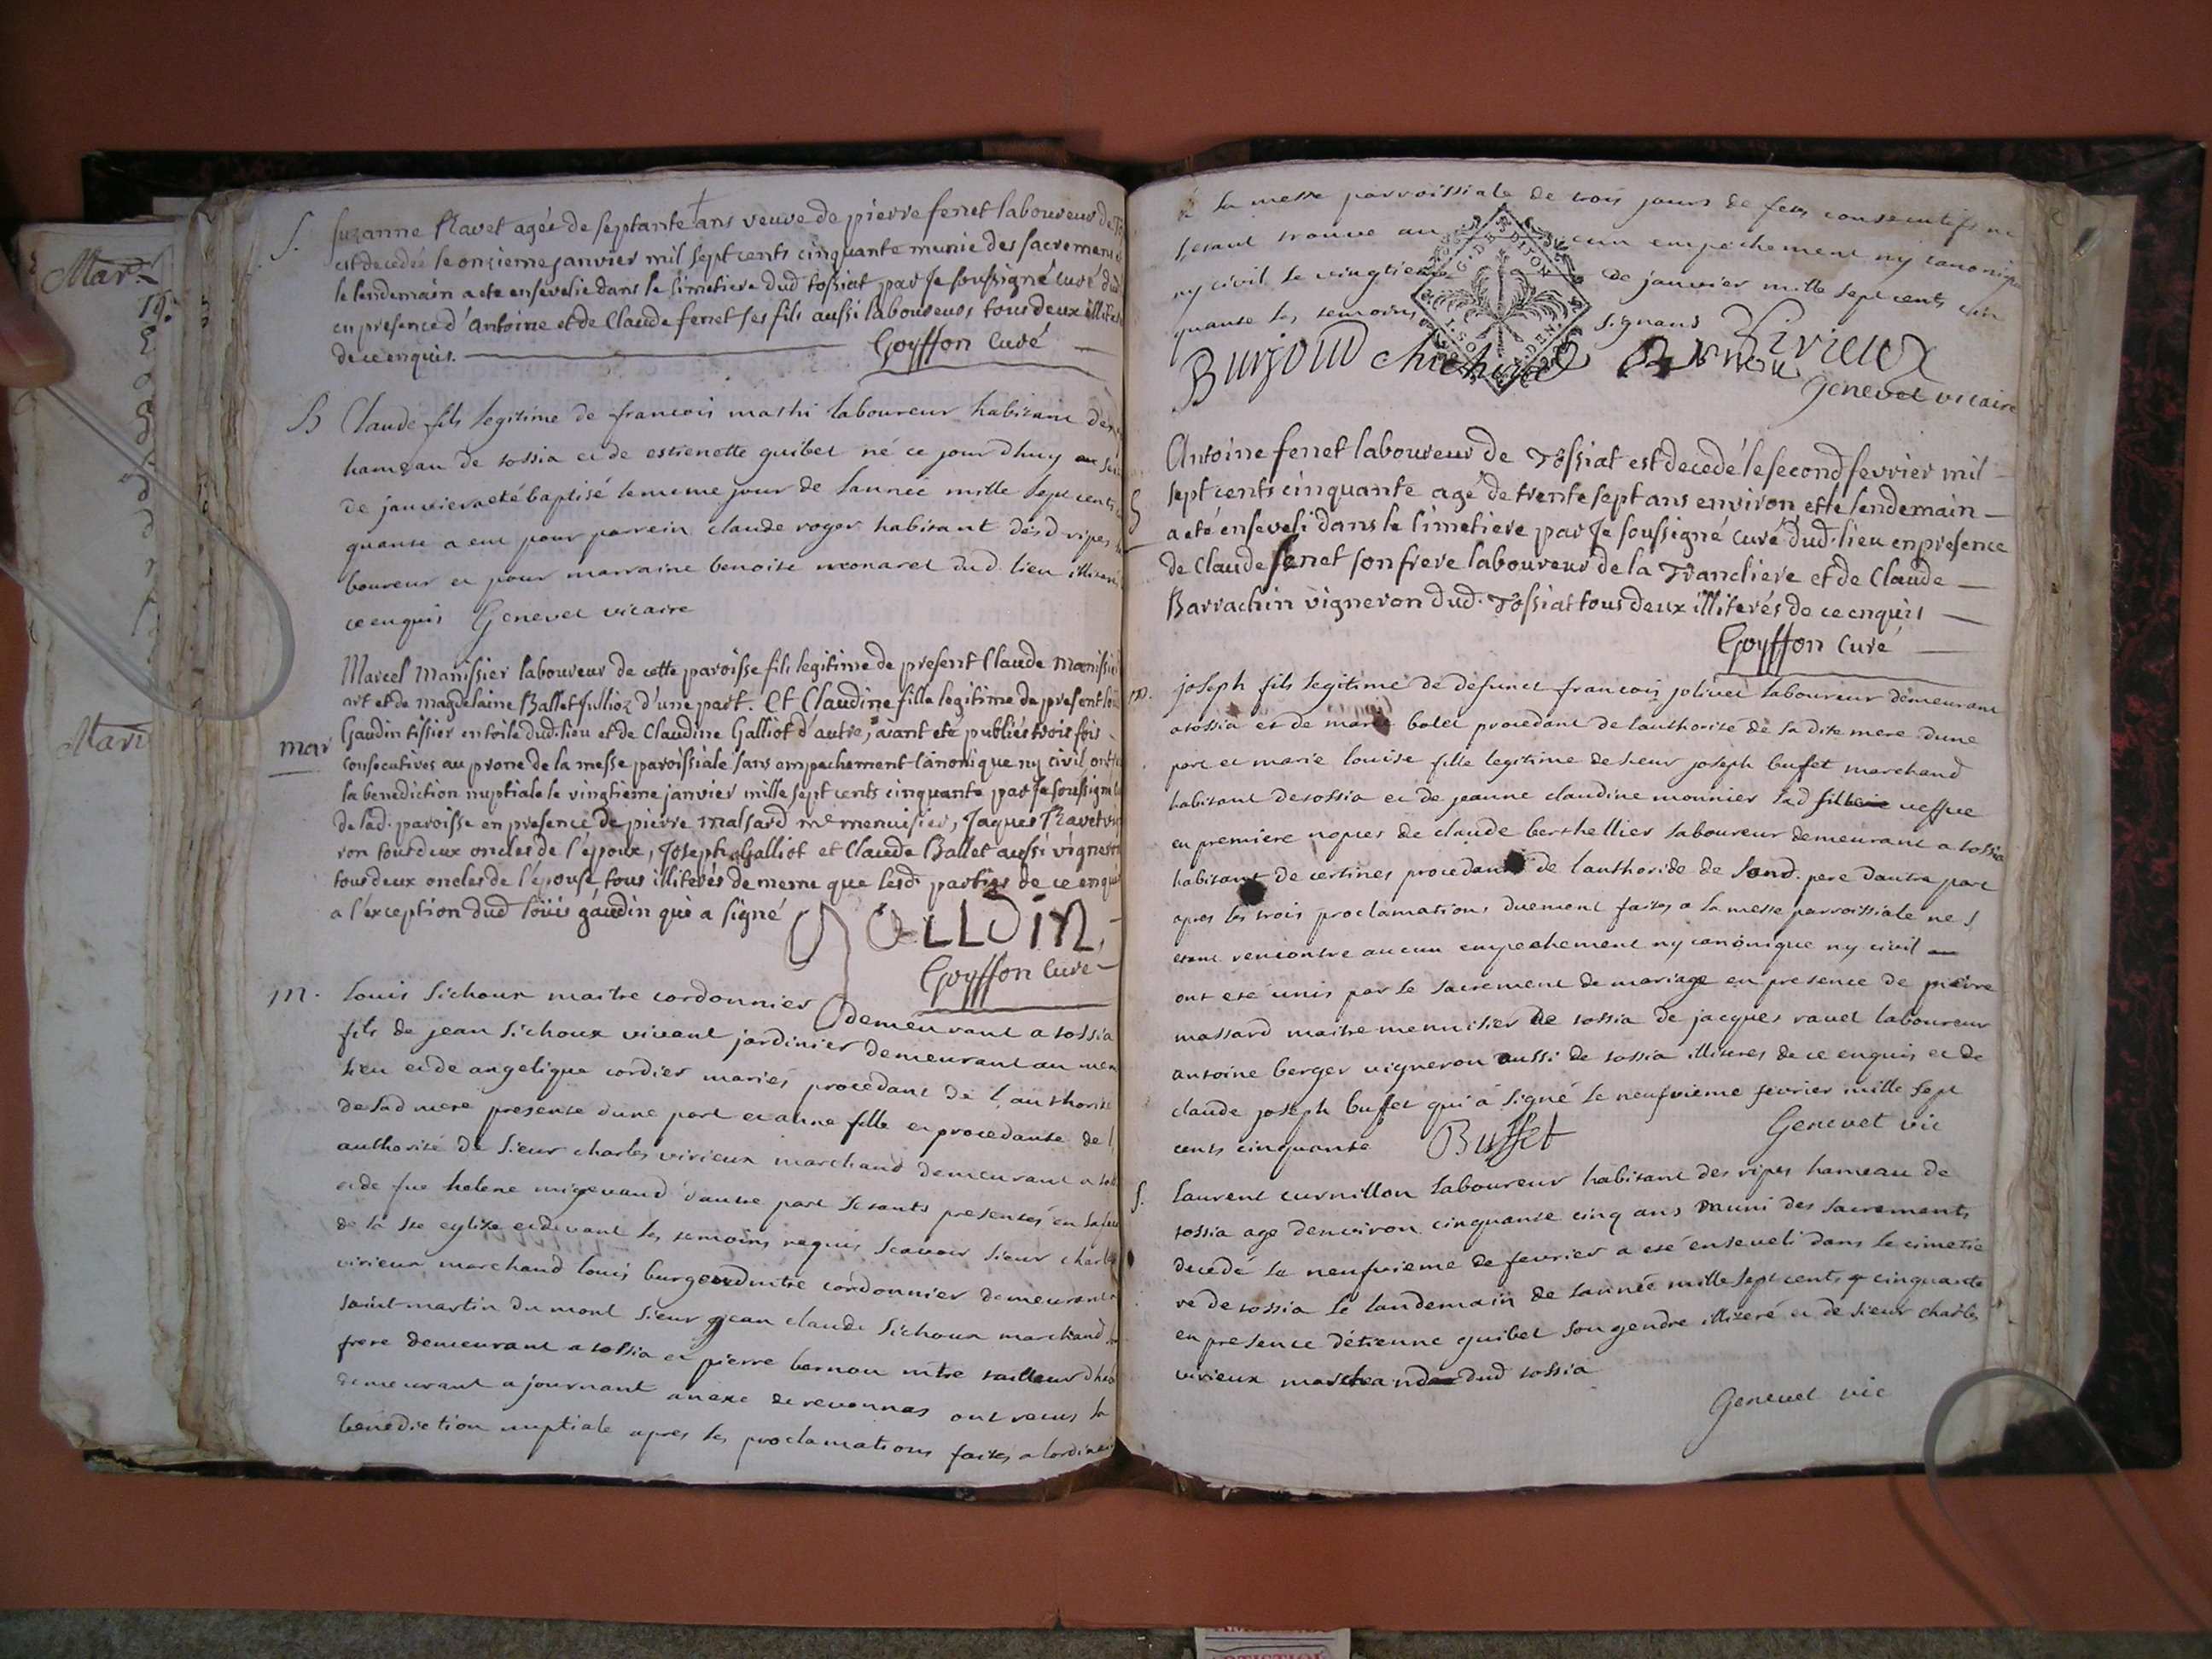 Mar.
Mari
S.
Suzanne Ravet agée de septante ans veuve de pierre ferret laboureur de
est decedée le onzieme janvier mil sept cents cinquante munie des sacremens
le lendemain a été ensevelie dans le simetiere dud tossiat par Je soussigné curé dud
en presence d'antoine et de Claude ferret ses fils aussi laboureurs tous deux illiteres
de ce enquis. Goyffon Curé
B
Claude fils legitime de francois mathi laboureur habitant des
hameau de tossia et de estienette guibet né ce jour dhuy
de janvier a eté baptisé le meme jour de lannée mille sept cents
quante a eut pour parrein claude roger habitant desd ripes
boureur et pour marraine benoite monaret dud. lieu illitere
ce enquis Genevet vicaire
mar
Marcel Manissier laboureur de cette paroisse fils legitime de present Claude Manissier
art et de magdelaine Ballet fullioz d'une part. Et Claudine fille legitime de present
Gaudin tissier en toile dud. lieu et de Claudine Galliot d'autre, aiant eté publiés trois fois
consecutives au prone de la messe paroissiale sans empechement canonique ny civil ont
la benediction nuptiale le vingtieme janvier mille sept cents cinquante par Je soussigné
de lad. paroisse en presence de pierre malsard me menuisier, Jaques Ravet
ron tout deux oncles de l'epoux, Joseph Galliot et Claude Ballet aussi vigneron
tous deux oncles de l'epouse, tous illiterés de meme que lesd. parties de ce enquis
a l'exception dud loüis gaudin qui a signé GALLDIN
Goyffon Curé
m.
Louis Sichoux maitre cordonnier demeurant a tossia
fils de jean Sichoux vivant jardinier demeurant au mem
lieu et de angelique cordier mariés procedant de l'authorité
de sad mere presente dune part et anne fille et procedante de l
authorité de sieur charles virieux marchand demeurant a
et de fue helene migevand dautre part
de la ste eglize et devant les temoins requis scavoir sieur charles
virieux marchand louis burgoud mtre cordonnier demeurant
saint martin du mont sieur jean claude Sichoux marchand
frere demeurant a tossia et pierre bernou mtre tailleur dhab
demeurant a journant anexe de revonnas ont recus la
benediction nuptiale apres les proclamations faites a lordinai
a la messe parroissiale de trois jours de fetes consecutifs ne
sétant trouvé aucun empechement ny canonique
ny civil le vingtieme de janvier mille sept cents cin
quante les temoins signans
G. DE DIJON
Burjoud Virieux
Genevet vicaire
S
Antoine ferret laboureur de Tossiat est decedé le second fevrier mil
sept cents cinquante agé de trente sept ans environ et le lendemain
a eté enseveli dans le simetiere par Je soussigné curé dud. lieu en presence
de Claude ferret son frere laboureur de la Trancliere et de Claude
Barrachin vigneron dud. Tossiat tous deux illiterés de ce enquis
Goyffon Curé
m.
joseph fils legitime de defunct francois jolivet laboureur demeurant
a tossia et de marie bolet procedant de lauthorité de sa dite mere dune
part et marie louise fille legitime de sieur joseph buffet marchand
habitant de tossia et de jeanne claudine monnier lad veffue
en premiere nopces de claude berthellier laboureur demeurant a tossia
habitant de certines procedant de lauthorité de sond. pere dautre part
apres les trois proclamations duement faites a la messe parroissiale ne s
etant rencontré aucun empechement ny canonique ny civil
ont eté unis par le sacrement de mariage en presence de pierre
massard maitre menuisier de tossia de jacques ravet laboureur
antoine berger vigneron aussi de tossia illiteres de ce enquis et de
claude joseph buffet qui a signé le neufvieme fevrier mille sept
cents cinquante Buffet Genevet vic
S.
laurent curnillon laboureur habitant des ripes hameau de
tossia agé denviron cinquante cinq ans muni des sacrements
decedé le neufvieme de fevrier a eté enseveli dans le cimetie
re de tossia le landemain de lannée mille sept cents cinquante
en presence détienne guibet son gendre illiteré et de sieur charles
virieux marchand dud tossia
Genevet vic